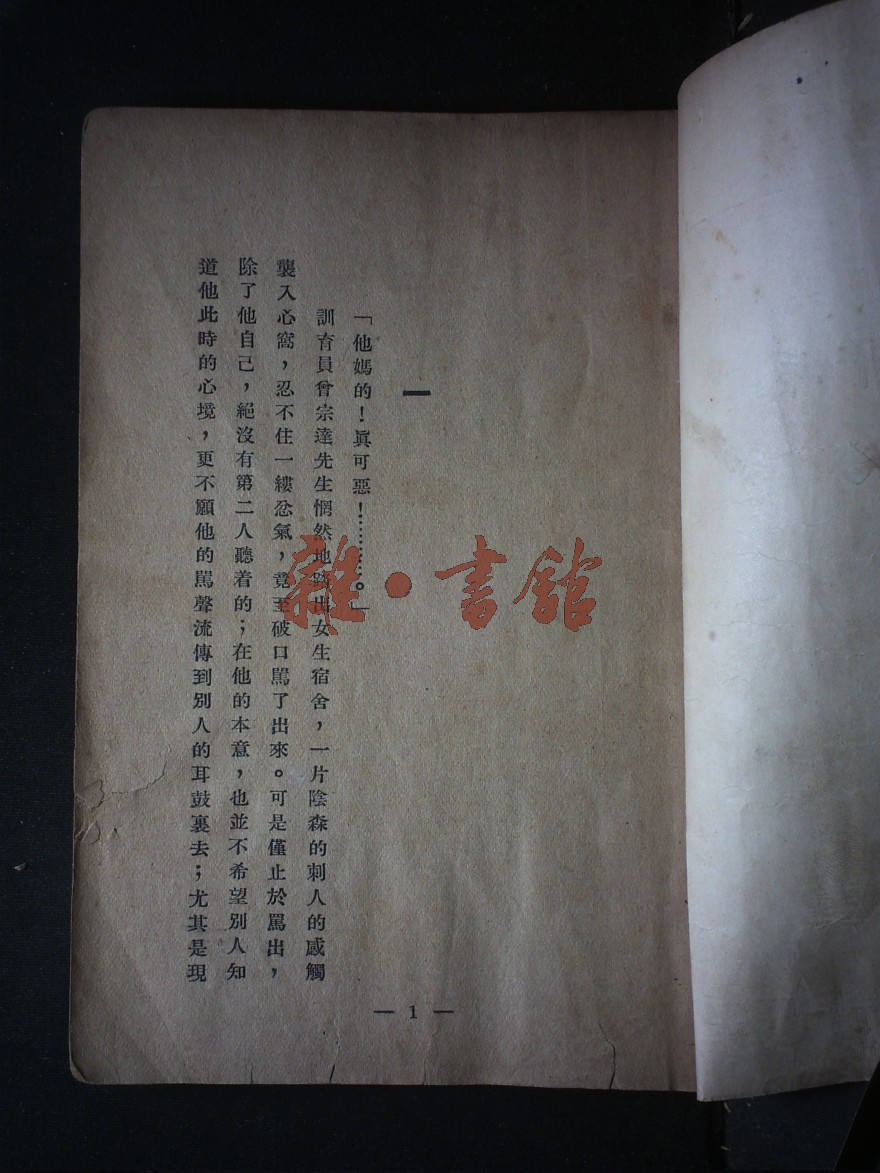 一
「他媽的！眞可惡！…………。」
訓育員曾宗達先生惘然地踱出女生宿舍，一片陰森的刺人的感觸
襲入心窩，忍不住一縷忿氣，竟至破口駡了出來。可是僅止於駡出，
除了他自己，絕沒有第二人聽着的；在他的本意，也並不希望別人知
道他此時的心境，更不願他的駡聲流傳到別人的耳鼓裏去；尤其是現
— 1 —
雜·書館